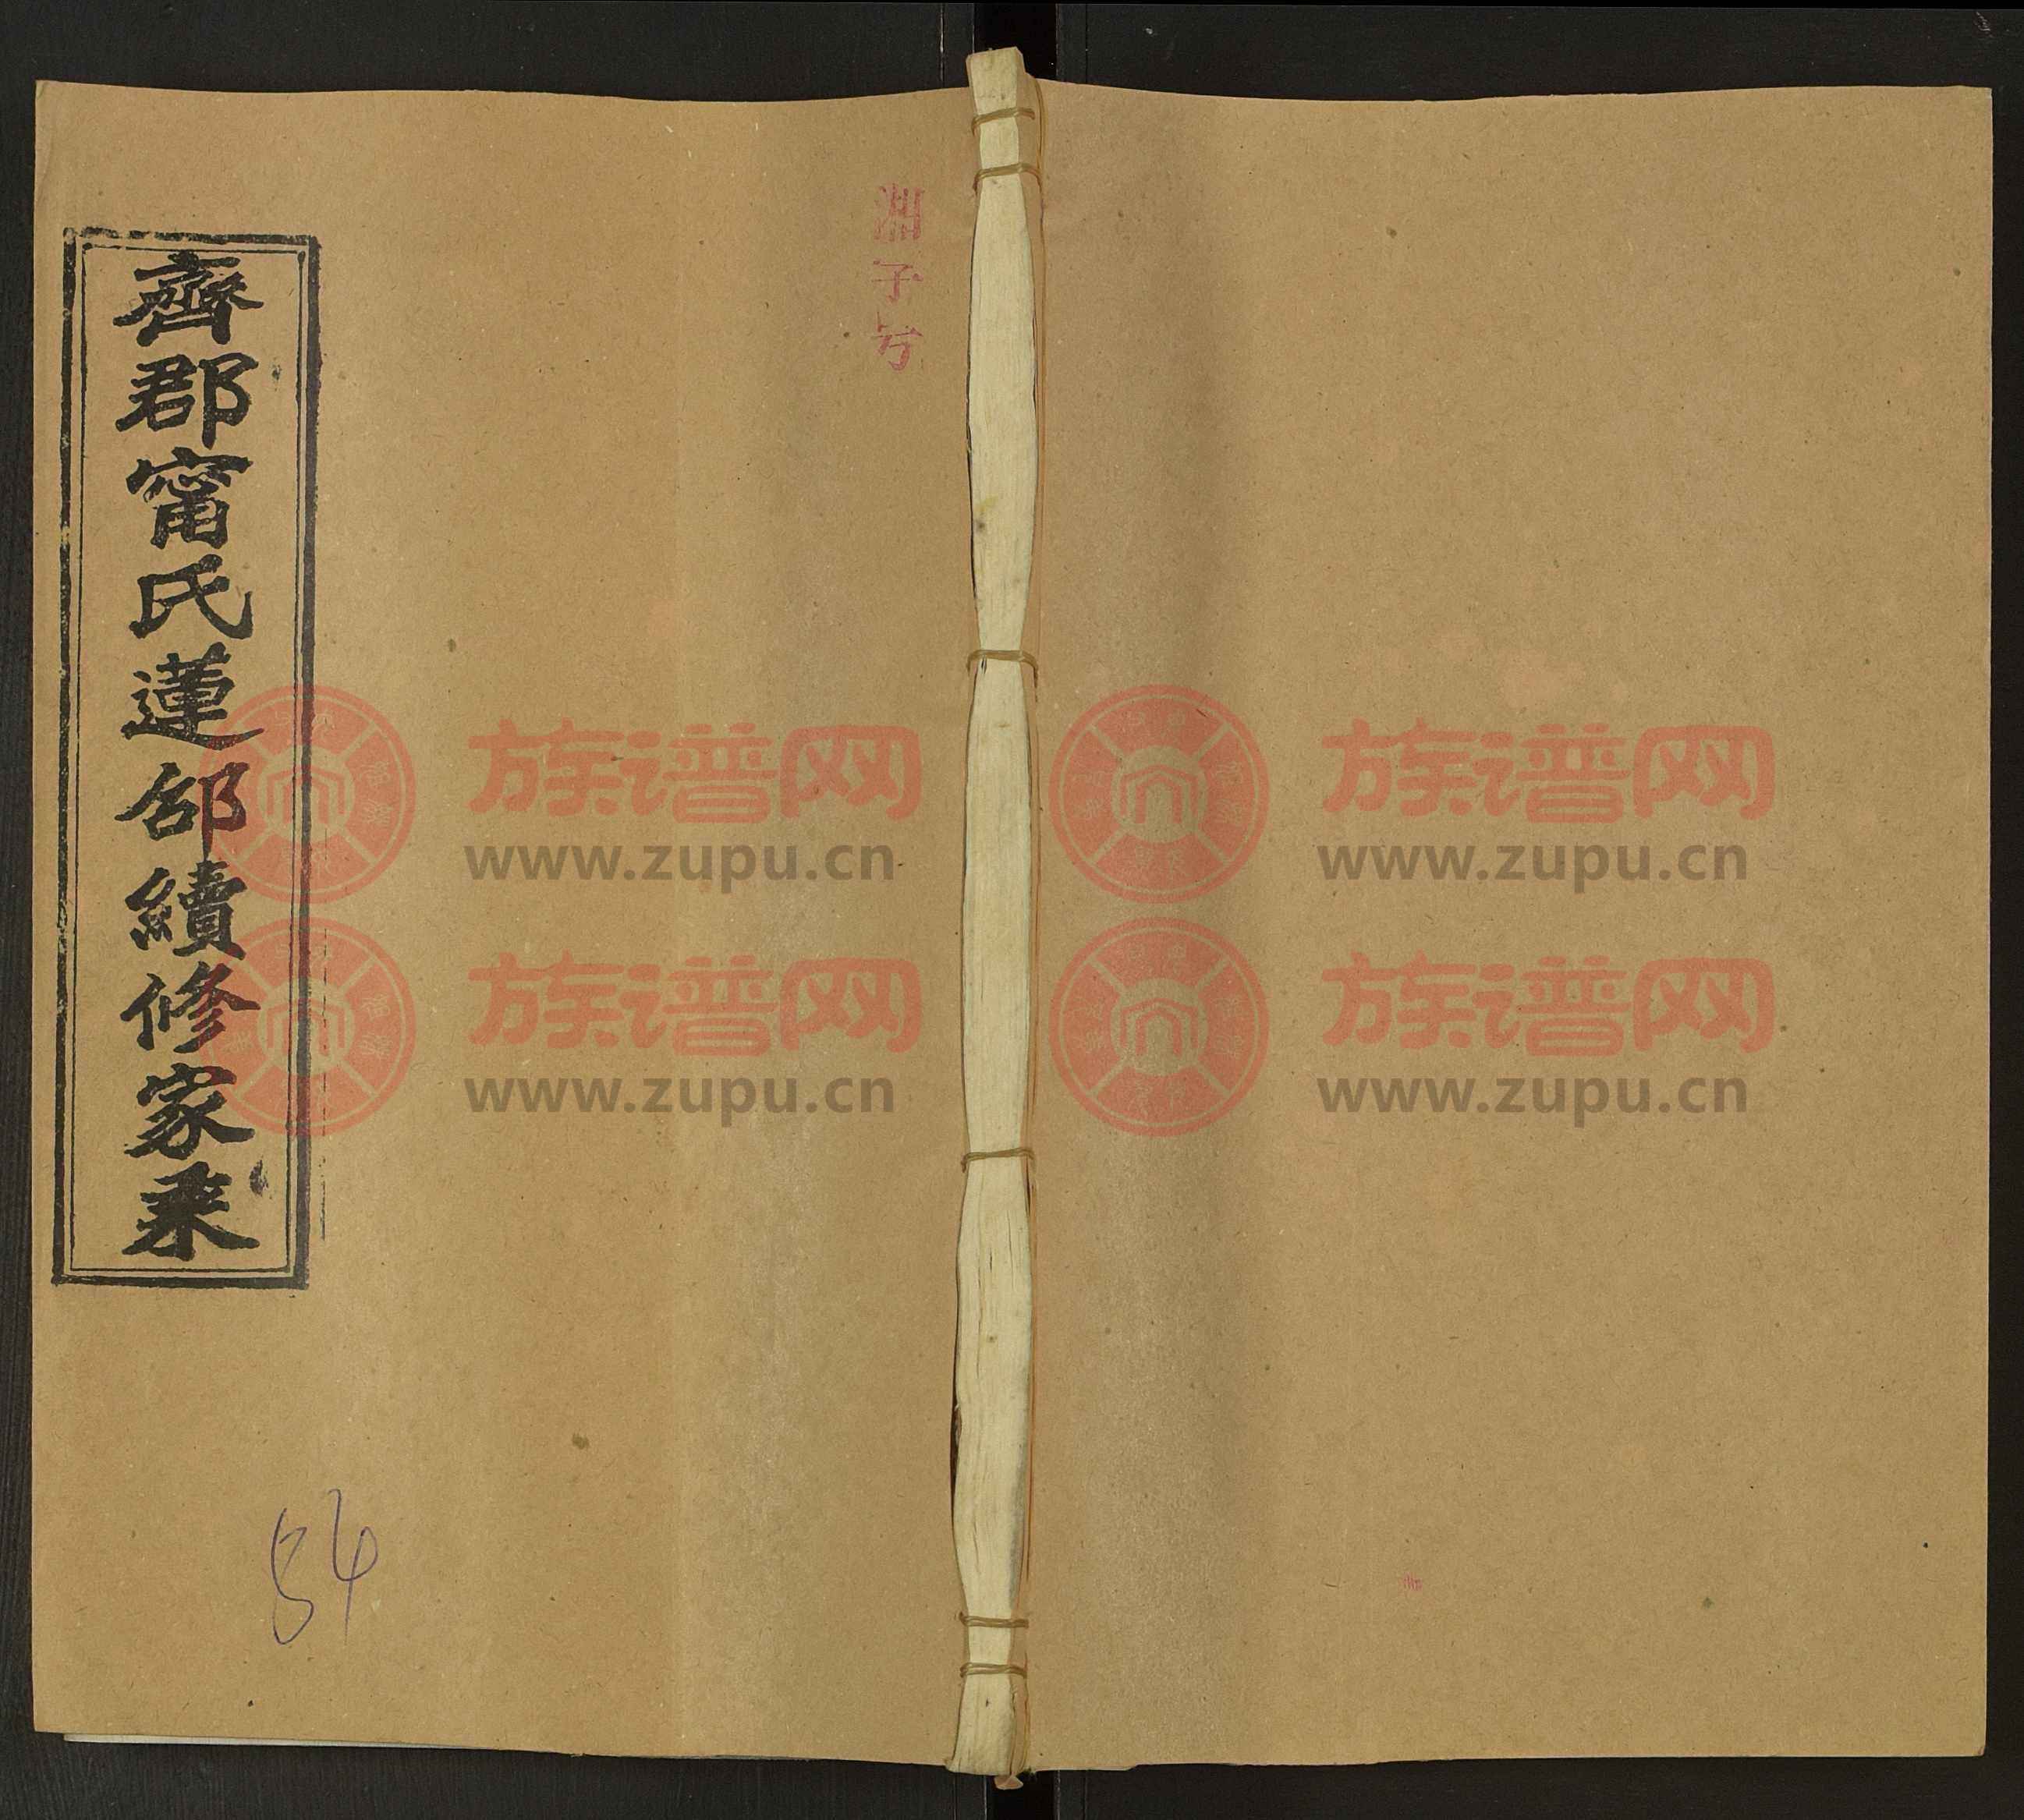 齊郡甯氏蓮邵續修家乘
湘子兮
54
族谱网
www.zupu.cn
族谱网
www.zupu.cn
族谱网
www.zupu.cn
族谱网
www.zupu.cn